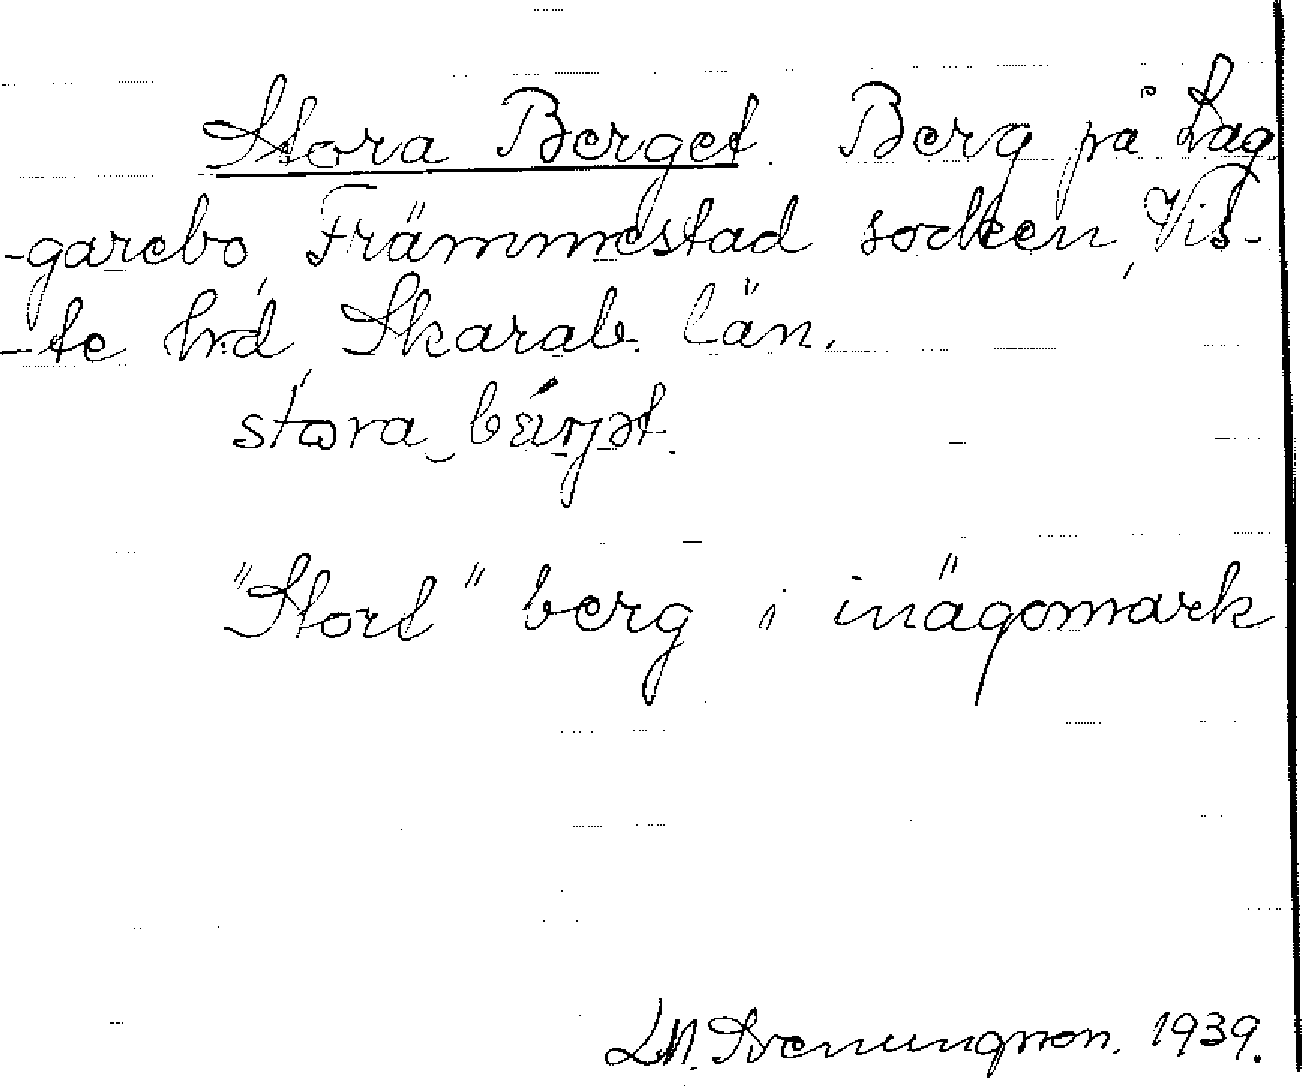 Stora Berget. Berg på Lag
-garebo, Främmestad socken, Vis-
-te hrd, Skarab. län.
stora bärjət.
"Stort" berg i inägomark
L.N. Svenungsson. 1939.